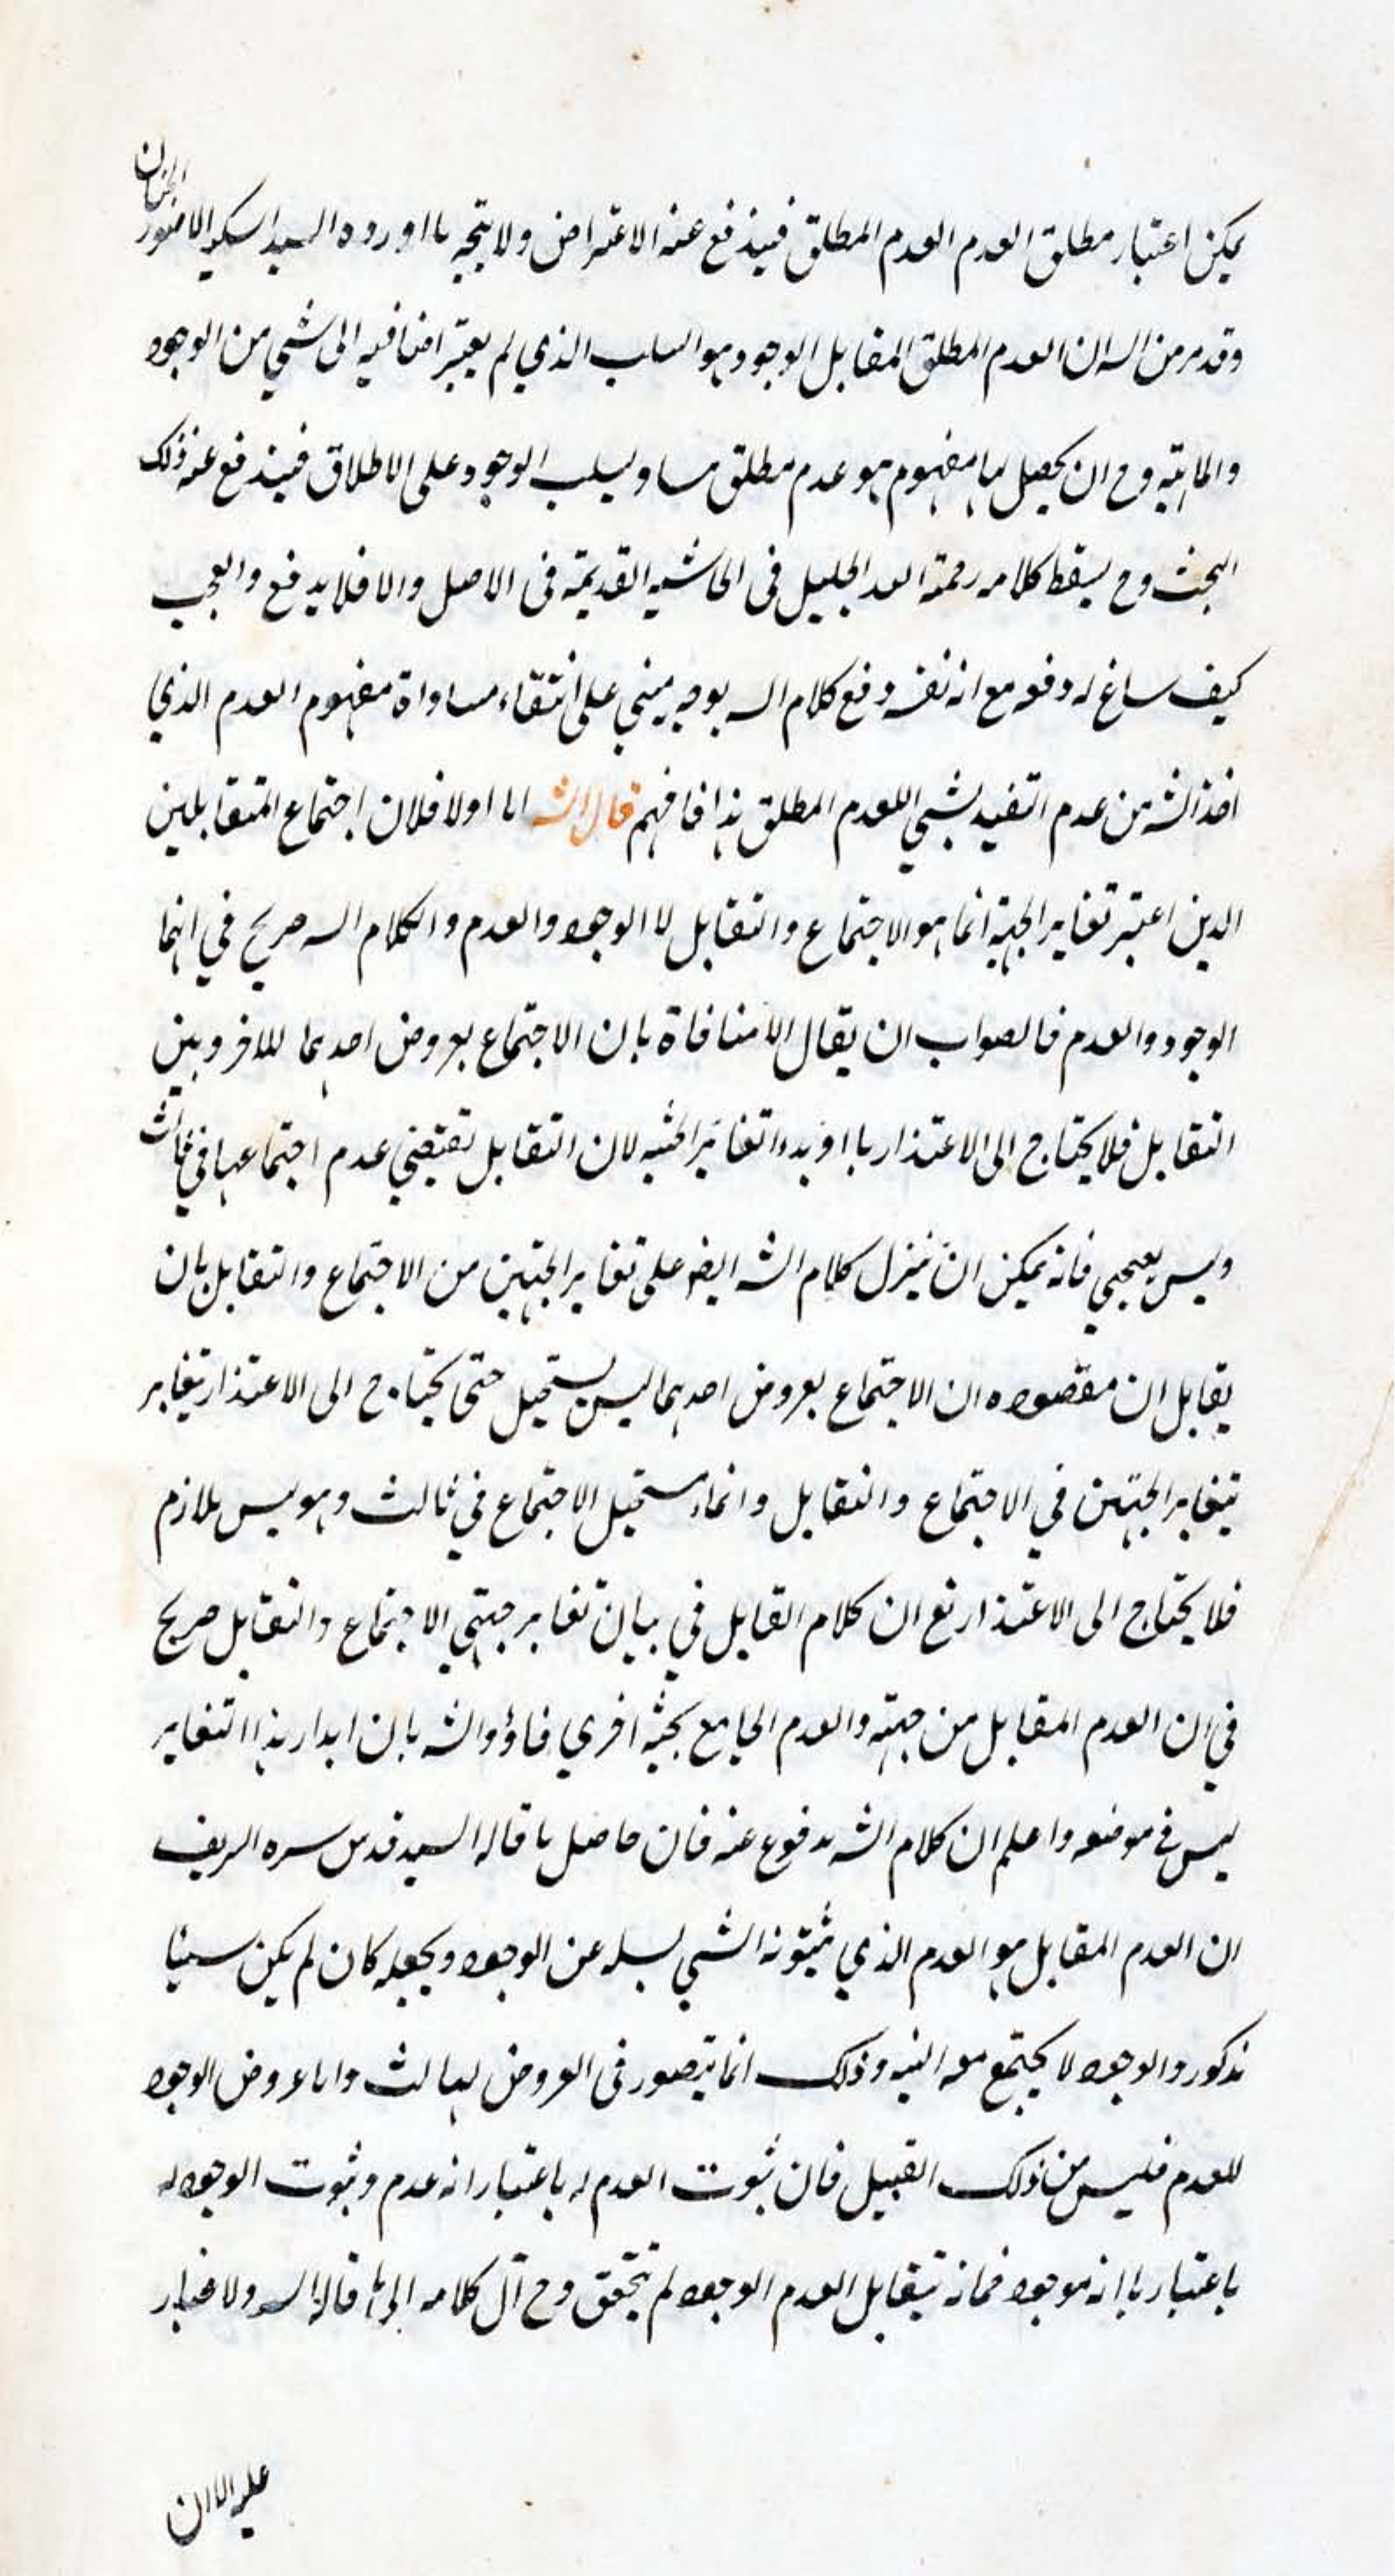 يمكن اعتبار مطلق العدم العدم المطلق فيندفع عنه الاعتراض ولا يتجه ما اورده السيد السكيد الا منور
وقد مر من الش ان العدم المطلق المقابل الوجود هو السلب الذي لم يعتبر اضافيه الى شي من الوجود
والماهية وح ان يحصل لها مفهوم هو عدم مطلق مساو لسلب الوجود على الاطلاق فيندفع عنه ذلك
البحث وح يسقط كلامه رحمة الله الجليل في الحاشيه القديمة في الاصل والا فلا يدفع والعجب
كيف ساغ له دفعه مع انه نفسه دفع كلام الش بوجه مبني على انتقاء مساواة مفهوم العدم الذي
اخذ الش من عدم التقييد بشي اللعدم المطلق هذا فافهم قال الش اما اولا فلان اجتماع المتقابلين
الذين اعتبر تغاير الجهة انما هو الاجتماع والتقابل لا الوجود والعدم والكلام الش صريح في انهما
الوجود والعدم فالصواب ان يقال لا منافاة بان الاجتماع بعروض احدهما للاخر وبين
التقابل فلا يحتاج الى الاعتذار بااوبده اتغاير الحثيه لان التقابل تقتضي عدم اجتماعهما في ثالث
وليس بعجبي فانه يمكن ان ينزل كلام الش ايضو على تغاير الجهتين من الاجتماع والتقابل بان
يقابل ان مقصوده ان الاجتماع بعروض احدهما ليس بستحيل حتى يحتاج الى الاعتذار بتغاير
بتغاير الجهتين في الاجتماع والتقابل وانما يستحيل الاجتماع في ثالث وهو ليس بلازم
فلا يحتاج الى الاعتذار نع ان كلام القايل في بيان تغاير جهتي الاجتماع والتقابل صريح
في ان العدم المقابل من جهته والعدم الجامع بحثيه اخري فاؤ والش بان ابدا ر هذا التغاير
ليس في موضعه واعلم ان كلام الش مدفوع عنه فان حاصل ما قاله السيد قدس سره الريف
ان العدم المقابل هو العدم الذي ثبوته الشي بسلبه عن الوجود ويجعله كان لم يكن سيئا
مذكور والوجود لا يجتمع معه البته وذلك انما يتصور في العروض لهما لثالث واما عروض الوجود
للعدم فليس من ذلك القبيل فان ثبوت العدم له باعتبار انه عدم وثبوت الوجود له
باعتبار ما انه موجود فمانه يتقابل العدم الوجود لم يتحقق وح آل كلامه الى ما قاله الش ولا غبار
عليه الا ان